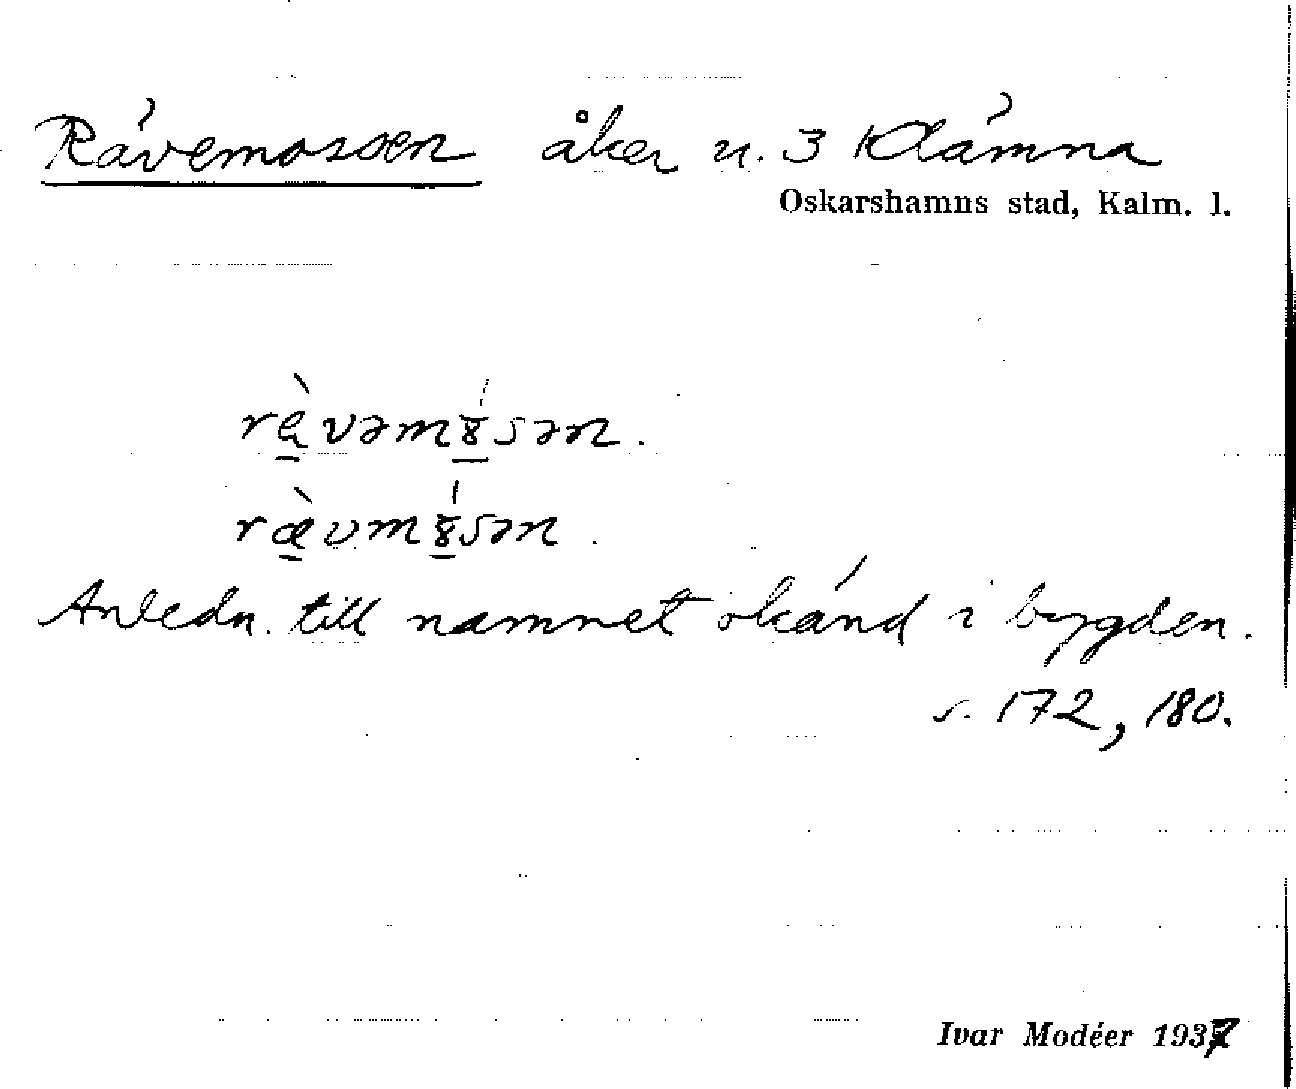 Rävemossen åker u. 3 Klämna
Oskarshamns stad, Kalm. l.
rävəm8sən.
rævm8sən.
Anledn. till namnet okänd i bygden.
s. 172, 180.
Ivar Modéer 1937